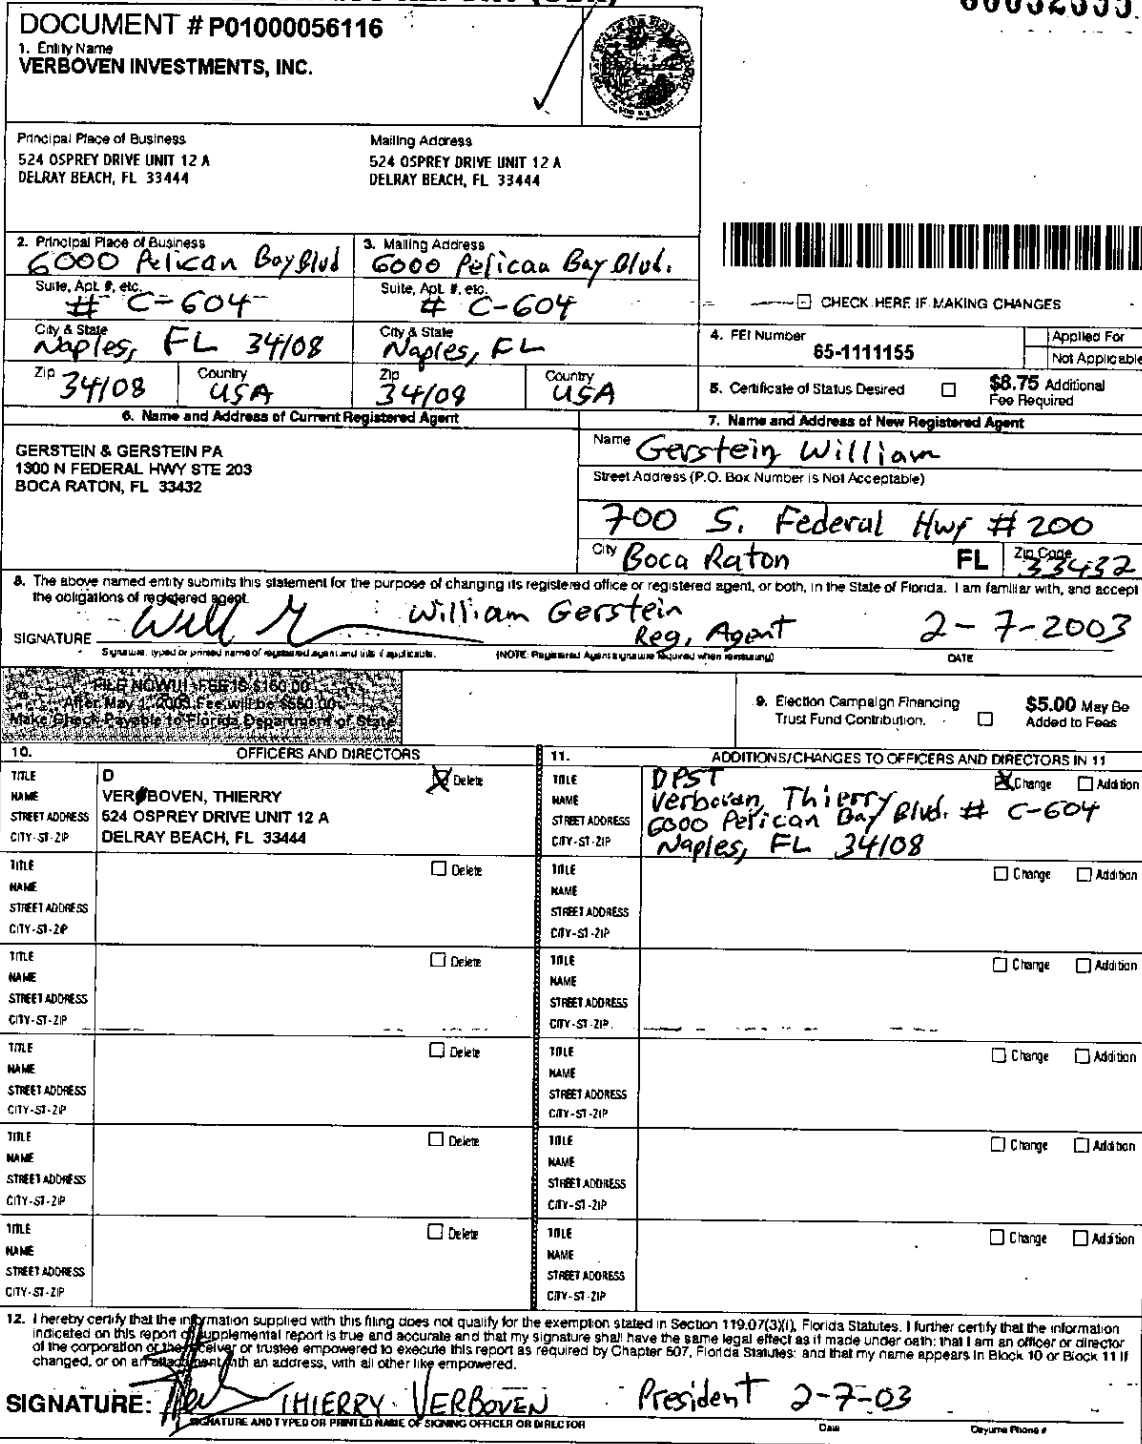 DOCUMENT # P01000056116
1. Entity Name
VERBOVEN INVESTMENTS, INC.
Principal Place of Business
524 OSPREY DRIVE UNIT 12 A
DELRAY BEACH, FL 33444
Mailing Address
524 OSPREY DRIVE UNIT 12 A
DELRAY BEACH, FL 33444
2. Principal Place of Business
6000 Pelican Bay Blvd
Suite, Apt. #, etc.
# C-604
City & State
Naples, FL 34108
Zip 34108
Country
USA
3. Mailing Address
6000 Pelican Bay Blvd.
Suite, Apt. #, etc.
# C-604
City & State
Naples, FL
Zip
34108
Country
USA
CHECK HERE IF MAKING CHANGES
4. FEI Number
65-1111155
Applied For
Not Applicable
5. Certificate of Status Desired
$8.75 Additional
Fee Required
6. Name and Address of Current Registered Agent
GERSTEIN & GERSTEIN PA
1300 N FEDERAL HWY STE 203
BOCA RATON, FL 33432
7. Name and Address of New Registered Agent
Name Gerstein William
Street Address (P.O. Box Number is Not Acceptable)
700 S. Federal Hwy # 200
City Boca Raton FL Zip Code 33432
8. The above named entity submits this statement for the purpose of changing its registered office or registered agent, or both, in the State of Florida. I am familiar with, and accept
the obligations of registered agent.
William Gerstein
Reg. Agent
2-7-2003
SIGNATURE
Signature, typed or printed name of registered agent and title if applicable.
(NOTE: Registered Agent signature required when reinstating)
DATE
FILE NOW!!! FEE IS $150.00
After May 1, 2003 Fee will be $550.00
Make Check Payable to Florida Department of State
9. Election Campaign Financing
Trust Fund Contribution.
$5.00 May Be
Added to Fees
10. OFFICERS AND DIRECTORS
TITLE D Delete
NAME VERBOVEN, THIERRY
STREET ADDRESS 524 OSPREY DRIVE UNIT 12 A
CITY-ST-ZIP DELRAY BEACH, FL 33444
TITLE Delete
NAME
STREET ADDRESS
CITY-ST-ZIP
TITLE Delete
NAME
STREET ADDRESS
CITY-ST-ZIP
TITLE Delete
NAME
STREET ADDRESS
CITY-ST-ZIP
TITLE Delete
NAME
STREET ADDRESS
CITY-ST-ZIP
TITLE Delete
NAME
STREET ADDRESS
CITY-ST-ZIP
11. ADDITIONS/CHANGES TO OFFICERS AND DIRECTORS IN 11
TITLE DPST Change Addition
NAME Verboven, Thierry
STREET ADDRESS 6000 Pelican Bay Blvd. # C-604
CITY-ST-ZIP Naples, FL 34108
TITLE Change Addition
NAME
STREET ADDRESS
CITY-ST-ZIP
TITLE Change Addition
NAME
STREET ADDRESS
CITY-ST-ZIP
TITLE Change Addition
NAME
STREET ADDRESS
CITY-ST-ZIP
TITLE Change Addition
NAME
STREET ADDRESS
CITY-ST-ZIP
TITLE Change Addition
NAME
STREET ADDRESS
CITY-ST-ZIP
12. I hereby certify that the information supplied with this filing does not qualify for the exemption stated in Section 119.07(3)(i), Florida Statutes. I further certify that the information
indicated on this report or supplemental report is true and accurate and that my signature shall have the same legal effect as if made under oath; that I am an officer or director
of the corporation or the receiver or trustee empowered to execute this report as required by Chapter 607, Florida Statutes; and that my name appears in Block 10 or Block 11 if
changed, or on an attachment with an address, with all other like empowered.
SIGNATURE: THIERRY VERBOVEN President 2-7-03
SIGNATURE AND TYPED OR PRINTED NAME OF SIGNING OFFICER OR DIRECTOR
Date
Daytime Phone #